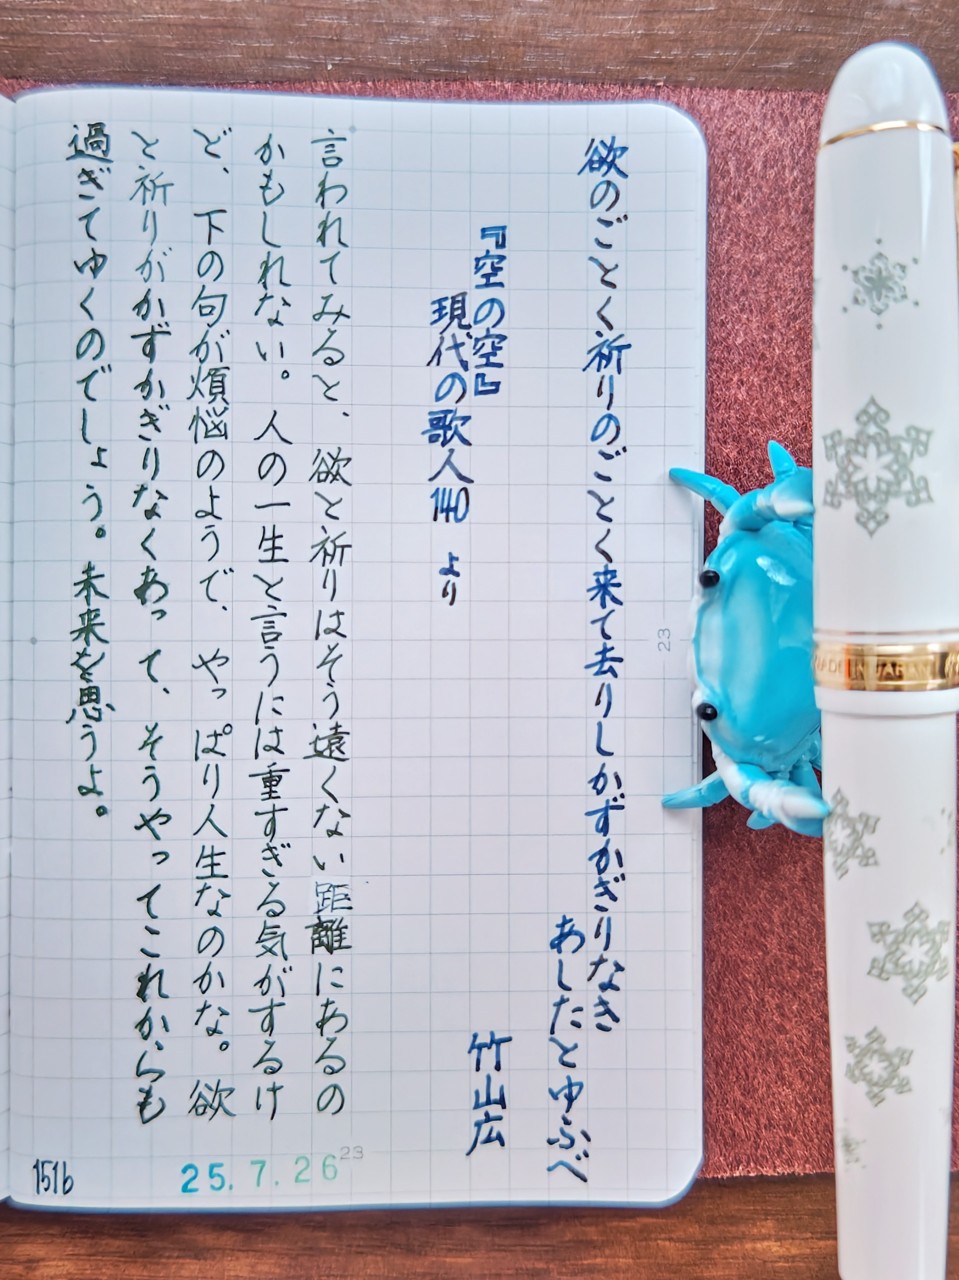 欲のごとく祈りのごとく来て去りしかずかぎりなき
あしたとゆふべ
竹山広
『空の空』
現代の歌人140 より
言われてみると、欲と祈りはそう遠くない距離にあるの
かもしれない。人の一生と言うには重すぎる気がするけ
ど、下の句が煩悩のようで、やっぱり人生なのかな。欲
と祈りがかずかぎりなくあって、そうやってこれからも
過ぎてゆくのでしょう。未来を思うよ。
23
25.7.26
23
1516
MADE IN JAPAN